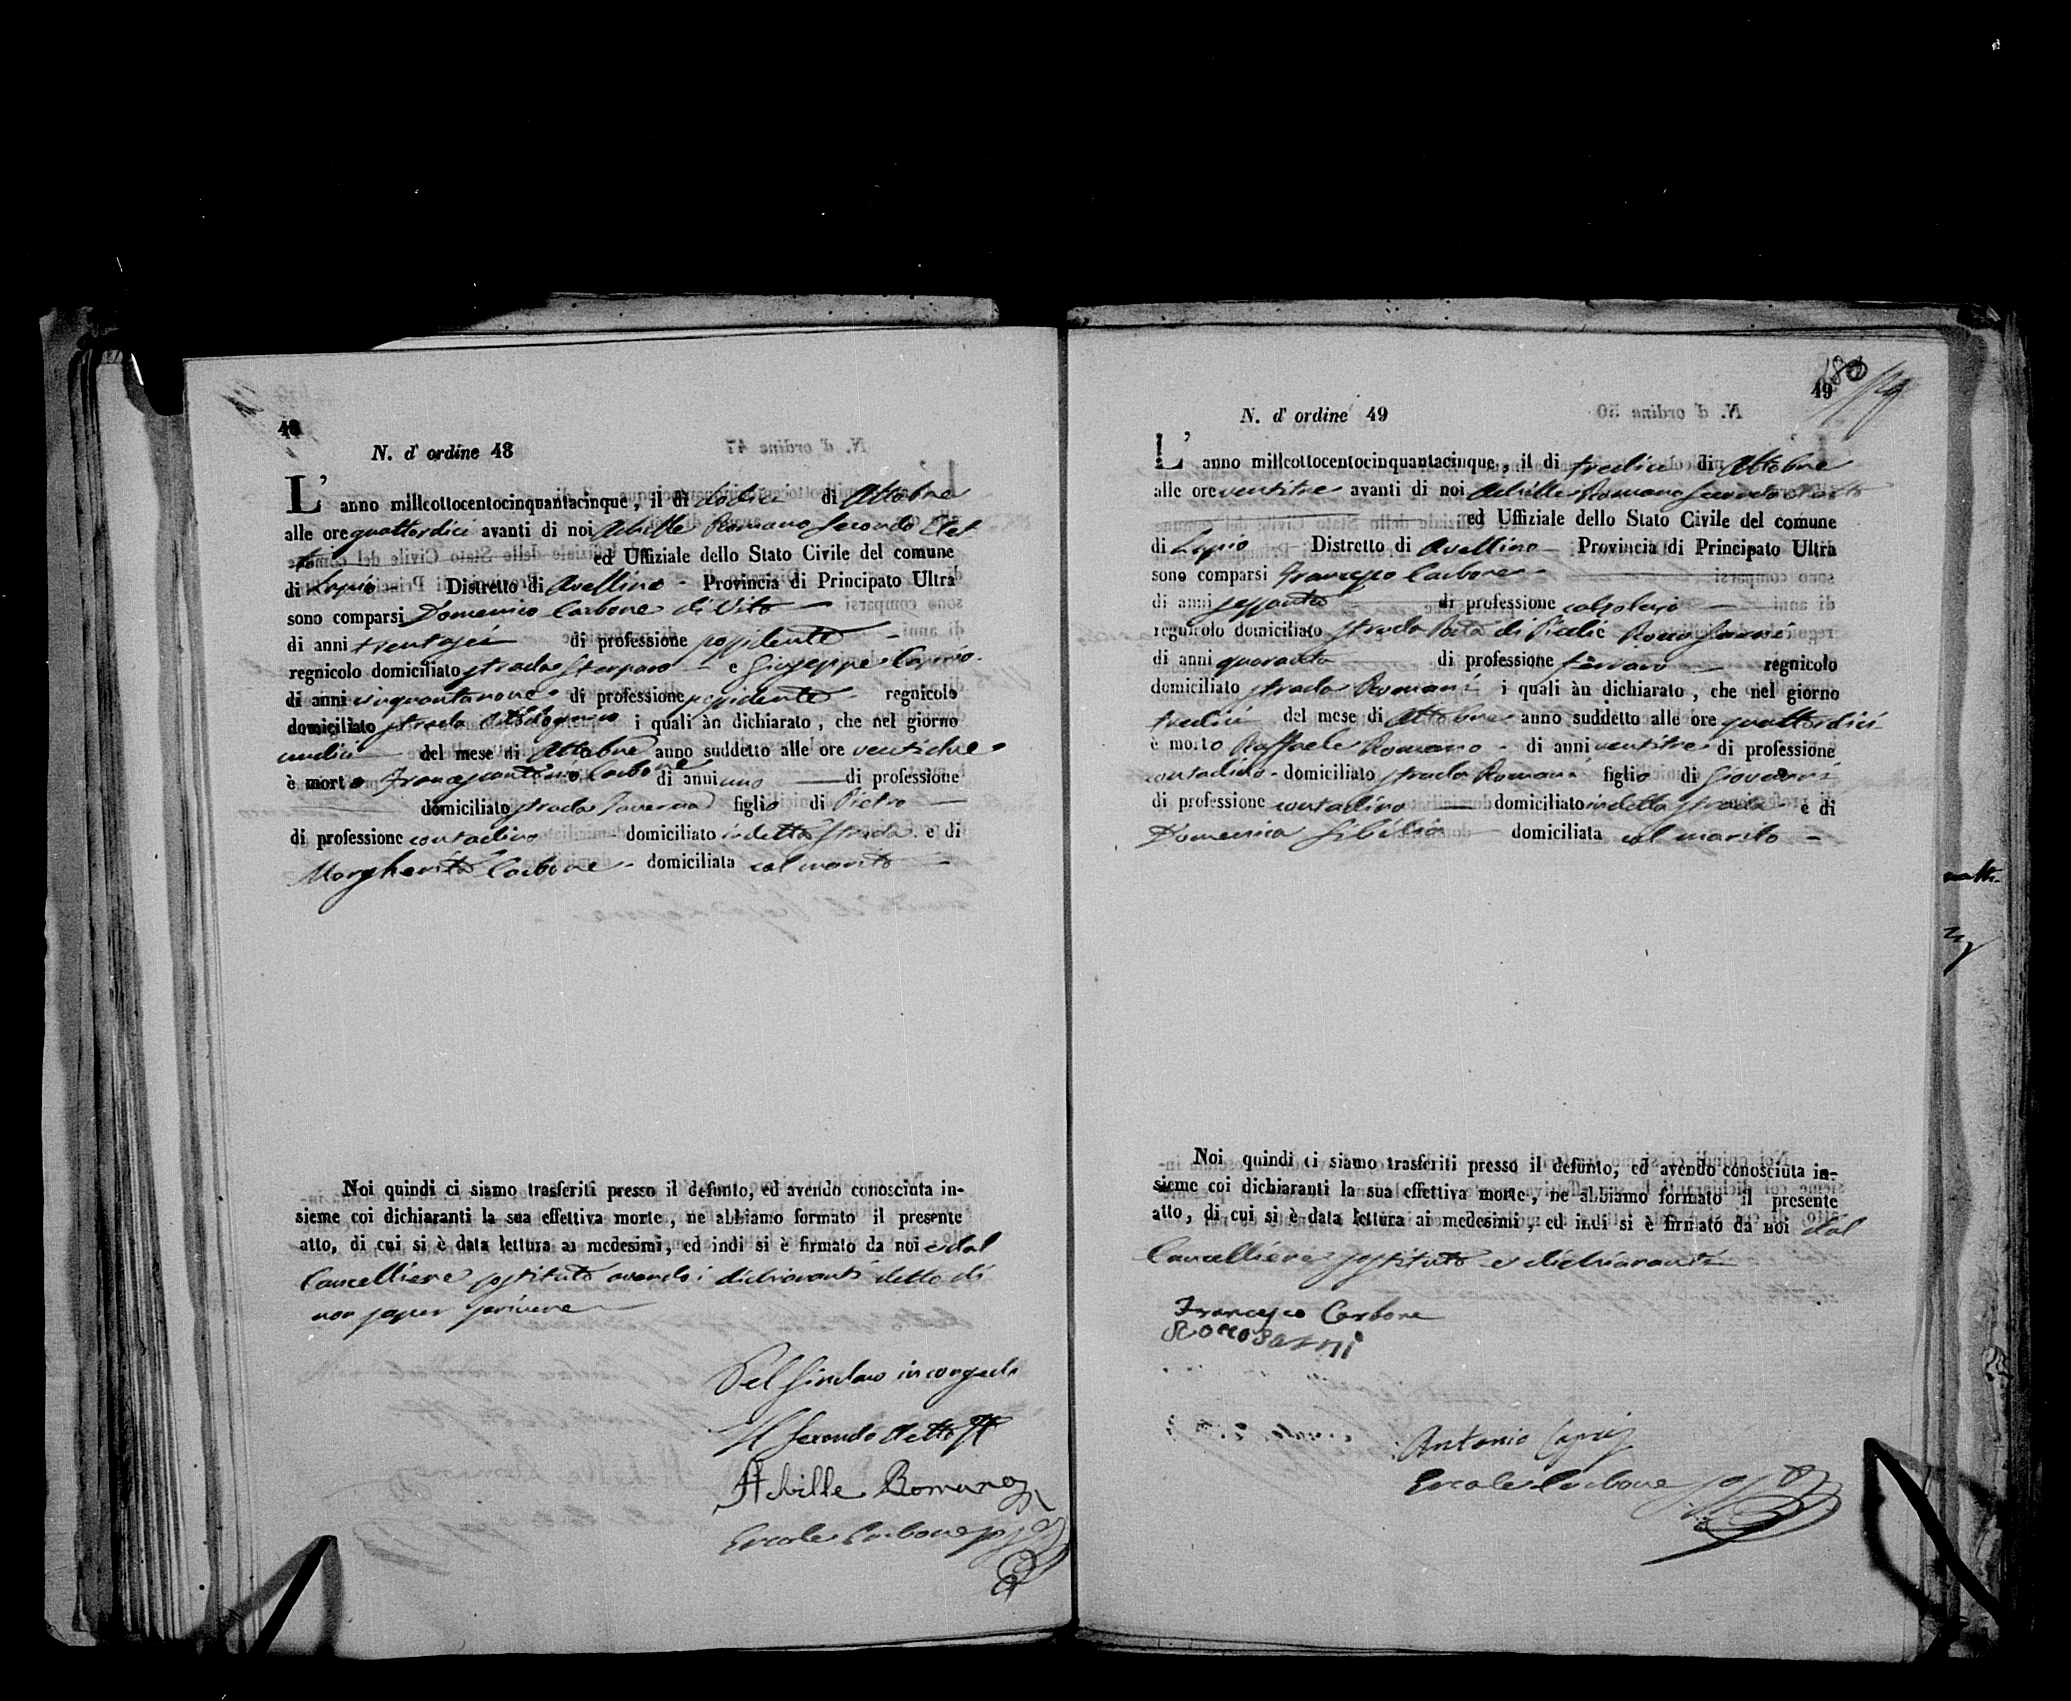 48
N. d' ordine 48
L' anno millcottocentocinquantacinque, il dì dodici di Ottobre
alle ore quattordici avanti di noi Achille Romano Secondo Elet
to ed Uffiziale dello Stato Civile del comune
di Lapio Distretto di Avellino - Provincia di Principato Ultra
sono comparsi Domenico Carbone di Vito
di anni trentasei di professione possidente
regnicolo domiciliato strada Sterparo e Giuseppe Caprio
di anni cinquantanove di professione possidente regnicolo
domiciliato strada i quali àn dichiarato, che nel giorno
undici del mese di Ottobre anno suddetto alle ore ventidue
è morto Francescantonio Carbone di anni uno di professione
domiciliato strada Taverna figlio di Pietro
di professione contadino domiciliato in detta strada e di
Margherita Carbone domiciliata col marito
Noi quindi ci siamo trasferiti presso il defunto, ed avendo conosciuta in-
sieme coi dichiaranti la sua effettiva morte, ne abbiamo formato il presente
atto, di cui si è data lettura ai medesimi, ed indi si è firmato da noi e dal
Cancelliere sostituto avendo i dichiaranti detto di
non saper scrivere
Pel Sindaco in congedo
Il Secondo Eletto
Achille Romano
Ercole Carbone
49
N. d' ordine 49
L' anno millcottocentocinquantacinque, il dì tredici di Ottobre
alle ore ventitre avanti di noi Achille Romano Secondo Eletto
ed Uffiziale dello Stato Civile del comune
di Lapio Distretto di Avellino Provincia di Principato Ultra
sono comparsi Francesco Carbone
di anni sessanta di professione calzolaio
regnicolo domiciliato strada di Rocco
di anni quaranta di professione ferraro regnicolo
domiciliato strada Romani i quali àn dichiarato, che nel giorno
tredici del mese di Ottobre anno suddetto alle ore quattordici
è morto Raffaele Romano di anni ventitre di professione
contadino domiciliato strada Romani figlio di Giovanni
di professione contadino domiciliato in detta strada e di
Domenica Sibilia domiciliata col marito
Noi quindi ci siamo trasferiti presso il defunto, ed avendo conosciuta in-
sieme coi dichiaranti la sua effettiva morte, ne abbiamo formato il presente
atto, di cui si è data lettura ai medesimi, ed indi si è firmato da noi dal
Cancelliere sostituto e dichiaranti
Francesco Carbone
Rocco
Antonio
Ercole Carbone